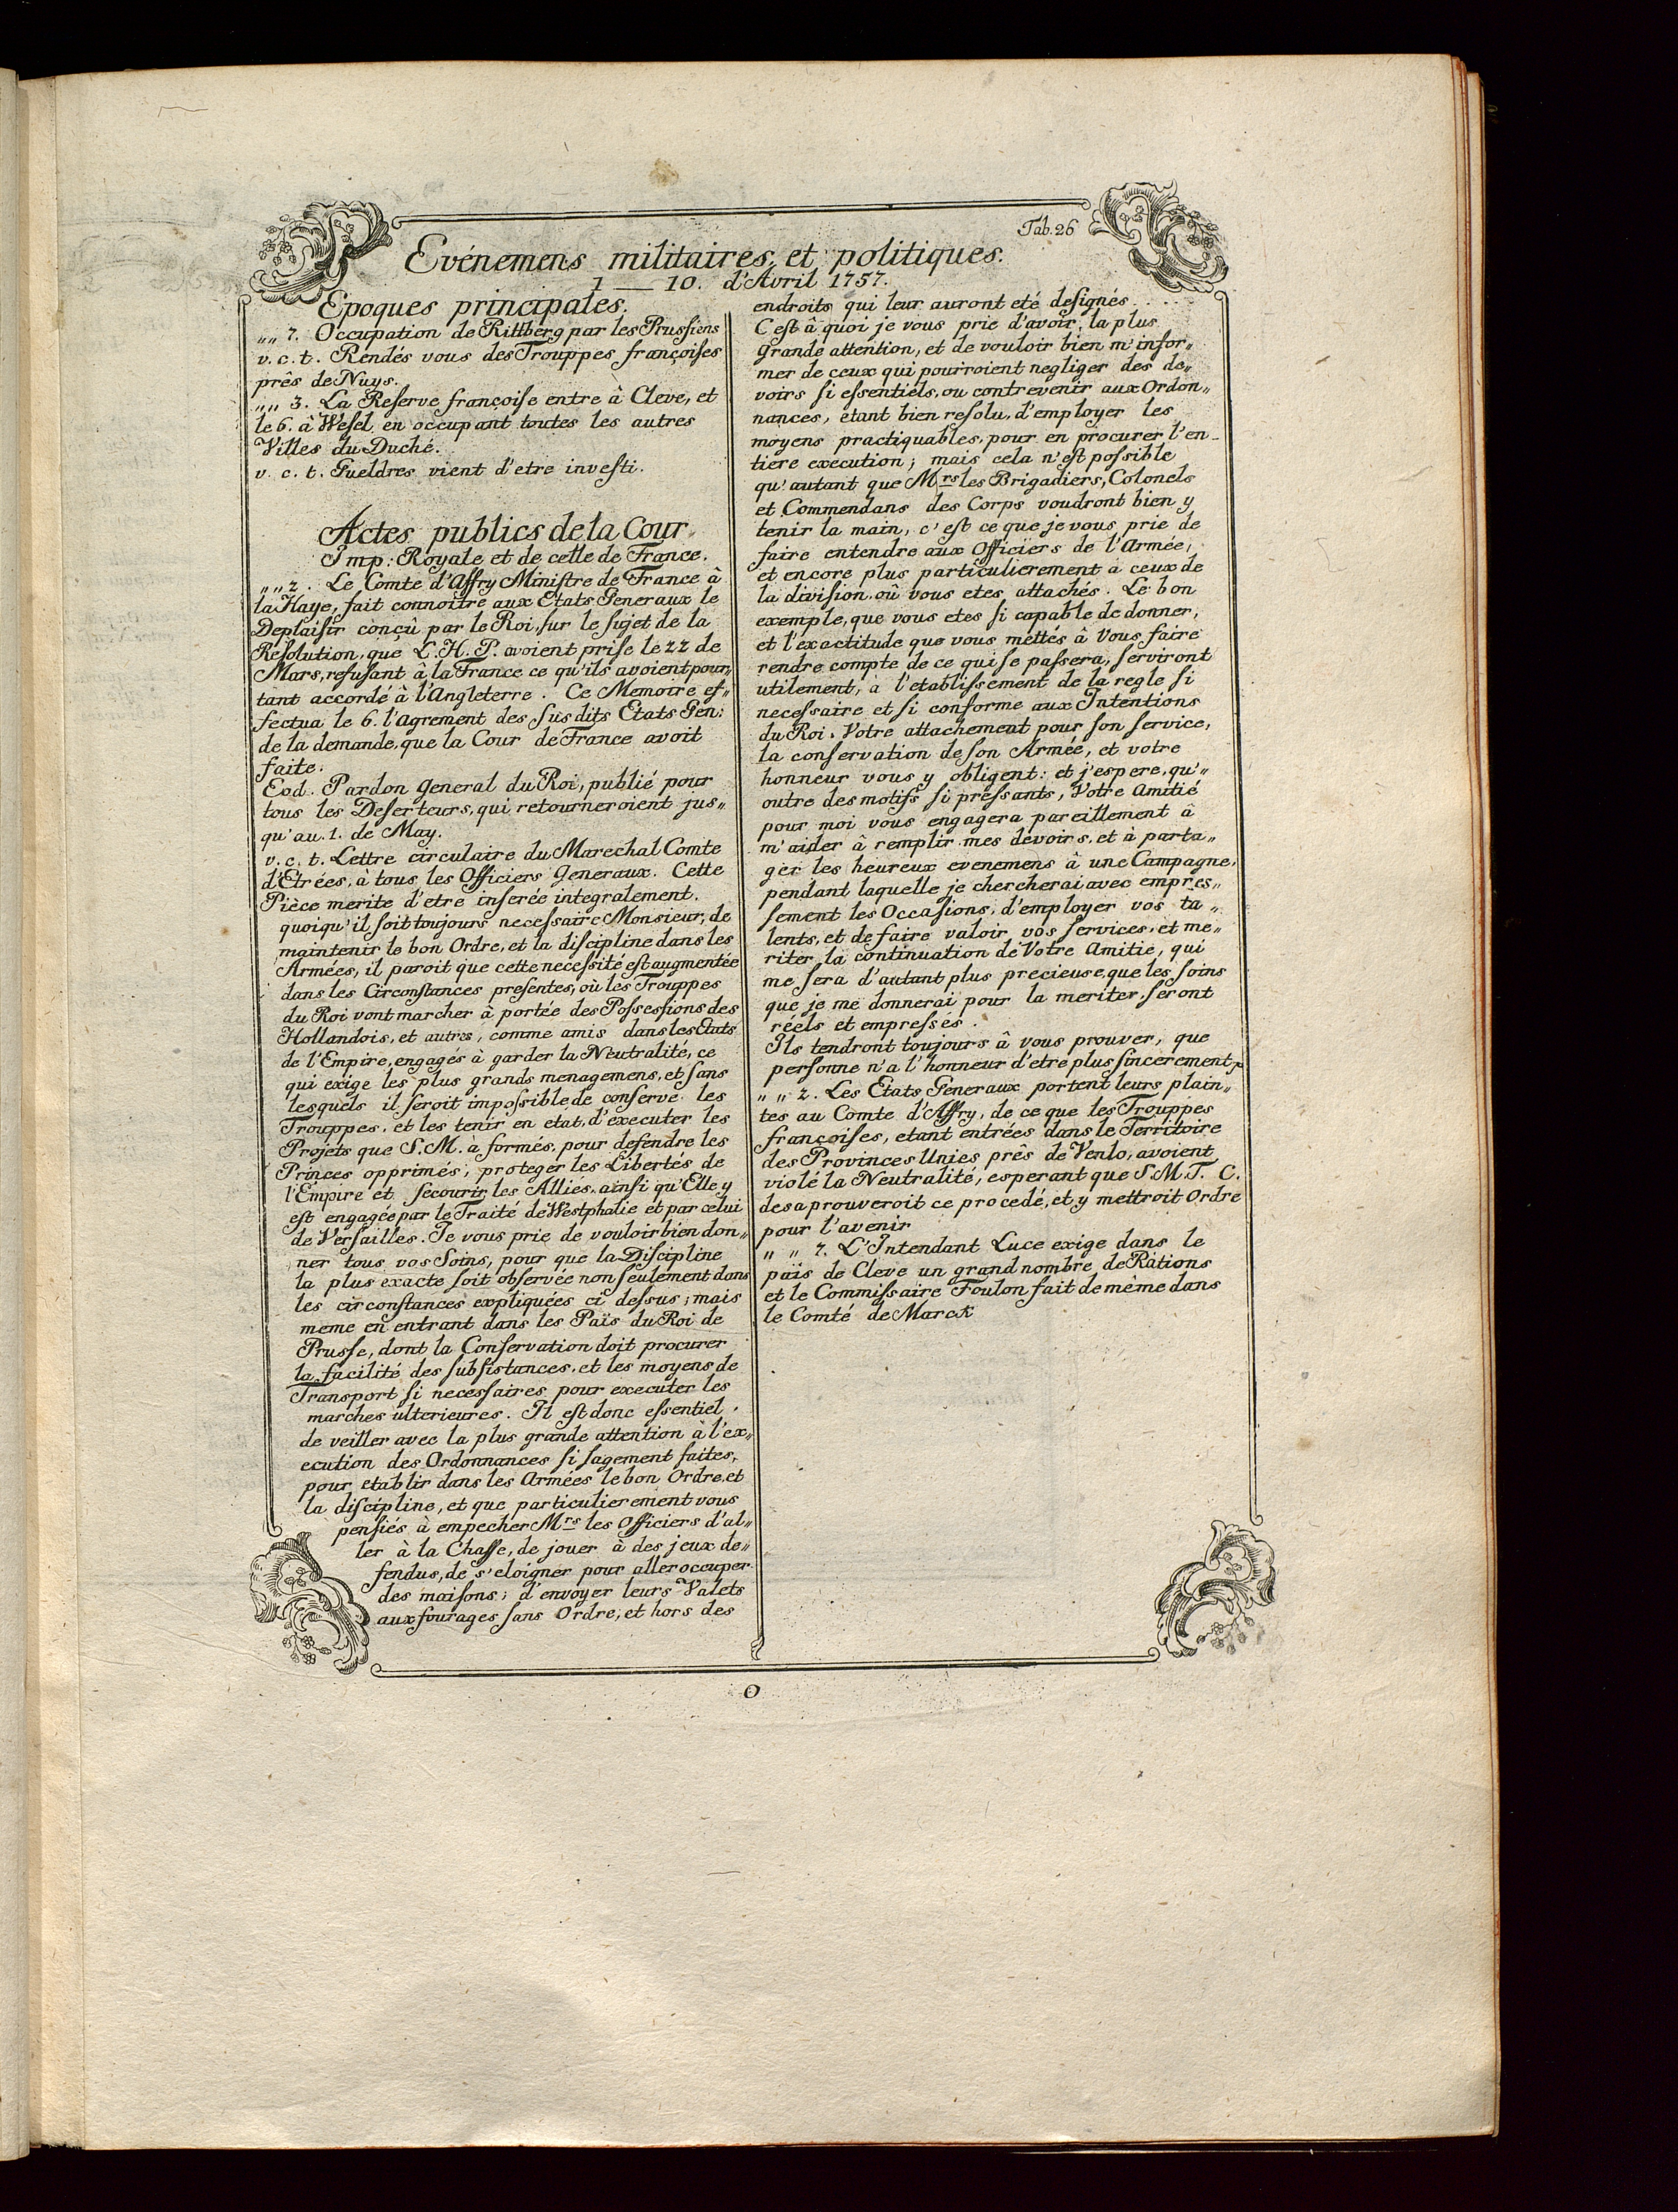 Tab. 26
Evénemens militaires, et politiques.
1 — 10. d'Avril 1757.
Epoques principales.
„„ 7. Occupation de Rittberg par les Prussiens
v. c. t. Rendés vous des Trouppes françoises
prês de Nuys.
„„ 3. La Reserve françoise entre à Cleve, et
le 6. à Wesel, en occupant toutes les autres
Villes du Duché.
v. c. t. Gueldres vient d'etre investi.
Actes publics de la Cour
Imp: Royale et de celle de France.
„„ 2. Le Comte d'Affry Ministre de France à
la Haye, fait connoitre aux Etats Generaux le
Deplaisir conçû par le Roi, sur le sujet de la
Resolution, que L. H. P. avoient prise le 22 de
Mars, refusant â la France ce qu'ils avoient pour„
tant accordé à l'Angleterre. Ce Memoire ef„
fectua le 6. l'Agrement des susdits Etats Gen:
de la demande, que la Cour de France avoit
faite.
Eod. Pardon general du Roi, publié pour
tous les Deserteurs, qui retourneroient jus„
qu'au. 1. de May.
v. c. t. Lettre circulaire du Marechal Comte
d'Etrées, à tous les Officiers Generaux. Cette
Pièce merite d'etre inserée integralement.
quoiqu'il soit toujours necessaire Monsieur, de
maintenir le bon Ordre, et la discipline dans les
Armées, il paroit que cette necessité est augmentée
dans les Circonstances presentes, où les Trouppes
du Roi vont marcher à portée des Possessions des
Hollandois, et autres, comme amis dans les Etats
de l'Empire, engagés à garder la Neutralité, ce
qui exige les plus grands menagemens, et sans
lesquels il seroit impossible de conserve les
Trouppes, et les tenir en etat, d'executer les
Projets que S. M. à formés, pour defendre les
Princes opprimés, proteger les Libertés de
l'Empire et secourir les Alliés, ainsi qu'Elle y
est engagée par le Traité de Westphalie et par celui
de Versailles. Je vous prie de vouloir bien don„
ner tous vos Soins, pour que la Discipline
la plus exacte soit observée non seulement dans
les circonstances expliquées ci dessus; mais
meme en entrant dans les Païs du Roi de
Prusse, dont la Conservation doit procurer
la facilité des subsistances, et les moyens de
Transport si necessaires pour executer les
marches ulterieures. Il est donc essentiel,
de veiller avec la plus grande attention à l'ex„
ecution des Ordonnances si sagement faites,
pour etablir dans les Armées le bon Ordre, et
la discipline, et que particulierement vous
pensiés à empecher Mrs les Officiers d'al„
ler à la Chasse, de jouer à des jeux de„
fendus, de s'eloigner pour aller occuper
des maisons; d'envoyer leurs Valets
aux fourages sans Ordre, et hors des
endroits qui leur auront eté designés....
C'est â quoi je vous prie d'avoir, la plus
grande attention, et de vouloir bien m'infor„
mer de ceux qui pourroient negliger des de„
voirs si essentiels, ou contrevenir aux Ordon„
nances, etant bien resolu, d'employer les
moyens practiquables, pour en procurer l'en„
tiere execution; mais cela n'est possible
qu'autant que Mrs les Brigadiers, Colonels
et Commendans des Corps voudront bien y
tenir la main, c'est ce que je vous prie de
faire entendre aux Officiers de l'Armée,
et encore plus particulierement à ceux de
la division, où vous etes attachés. Le bon
exemple, que vous etes si capable de donner,
et l'exactitude que vous mettés â vous faire
rendre compte de ce qui se passera, serviront
utilement, à l'etablissement de la regle si
necessaire et si conforme aux Intentions
du Roi. Votre attachement pour son service,
la conservation de son Armée, et votre
honneur vous y obligent: et j'espere, qu'„
outre des motifs si pressants, Votre Amitié
pour moi vous engagera pareillement â
m'aider â remplir mes devoirs, et à parta„
ger les heureux evenemens â une Campagne,
pendant laquelle je chercherai avec empres„
sement les Occasions, d'employer vos ta„
lents, et de faire valoir vos services, et me„
riter la continuation de Votre Amitie, qui
me sera d'autant plus precieuse, que les soins
que je me donnerai pour la meriter, seront
réels et empressés.
Ils tendront toujours â vous prouver, que
personne n'a l'honneur d'etre plus sincerement p
„ „ 2. Les Etats Generaux portent leurs plain„
tes au Comte d'Affry, de ce que les Trouppes
françoises, etant entrées dans le Territoire
des Provinces Unies prês de Venlo, avoient
violé la Neutralité, esperant que S. M. T. C.
desaprouveroit ce procedé, et y mettroit Ordre
pour l'avenir
„ „ 7. L'Intendant Luce exige dans le
païs de Cleve un grand nombre de Rations
et le Commissaire Foulon fait de même dans
le Comté de Marck
O